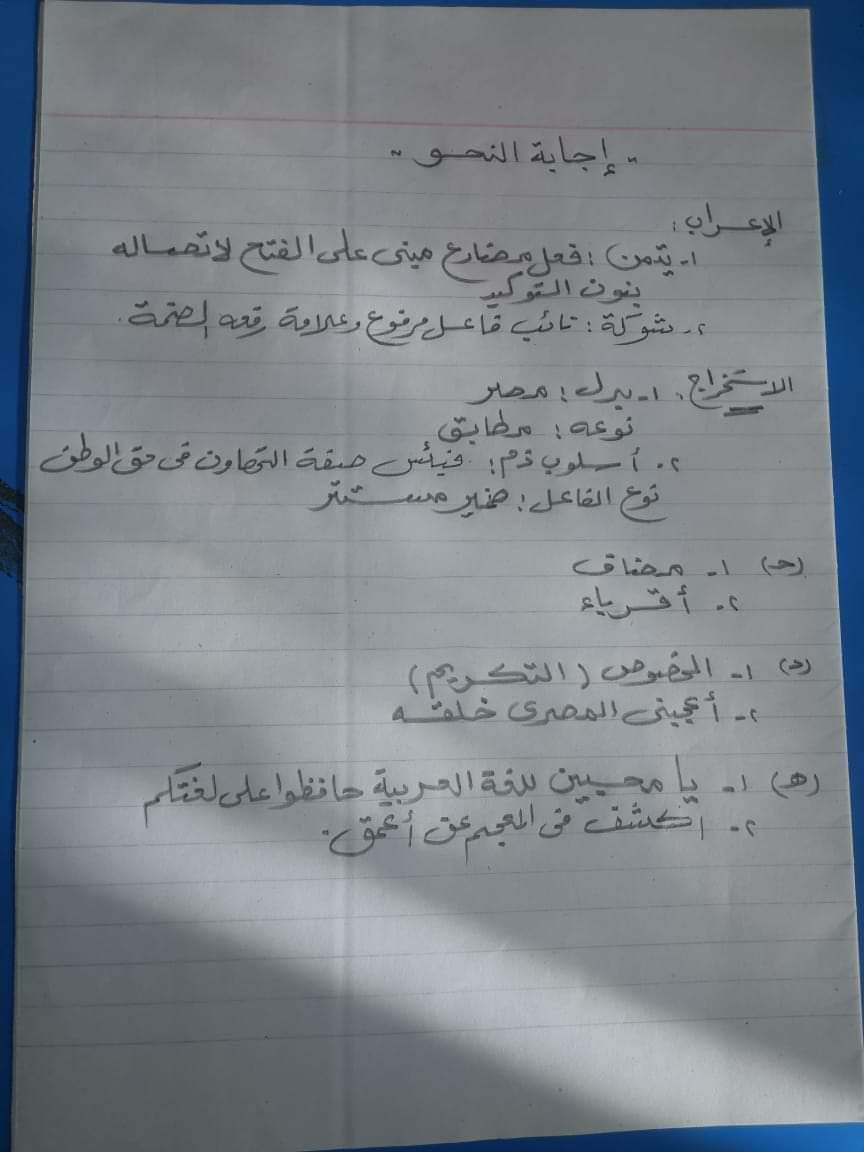 " إجابة النحو "
الإعراب:
١- يتمن: فعل مضارع مبنى على الفتح لاتصاله
بنون التوكيد
٢- شوكة: نائب فاعل مرفوع وعلامة رفعه الضمة.
الاستخراج: ١- بدل: مصر
نوعه: مطابق
٢- أسلوب ذم: فبئس صفة التهاون فى حق الوطن
نوع الفاعل: ضمير مستتر
(حـ) ١- مضاف
٢- أقرباء
(د) ١- المخصوص (التكريم)
٢- أعجبنى المصرى خلقه
(هـ) ١- يا محبين للغة العربية حافظوا على لغتكم
٢- اكشف فى المعجم عن أعمق.